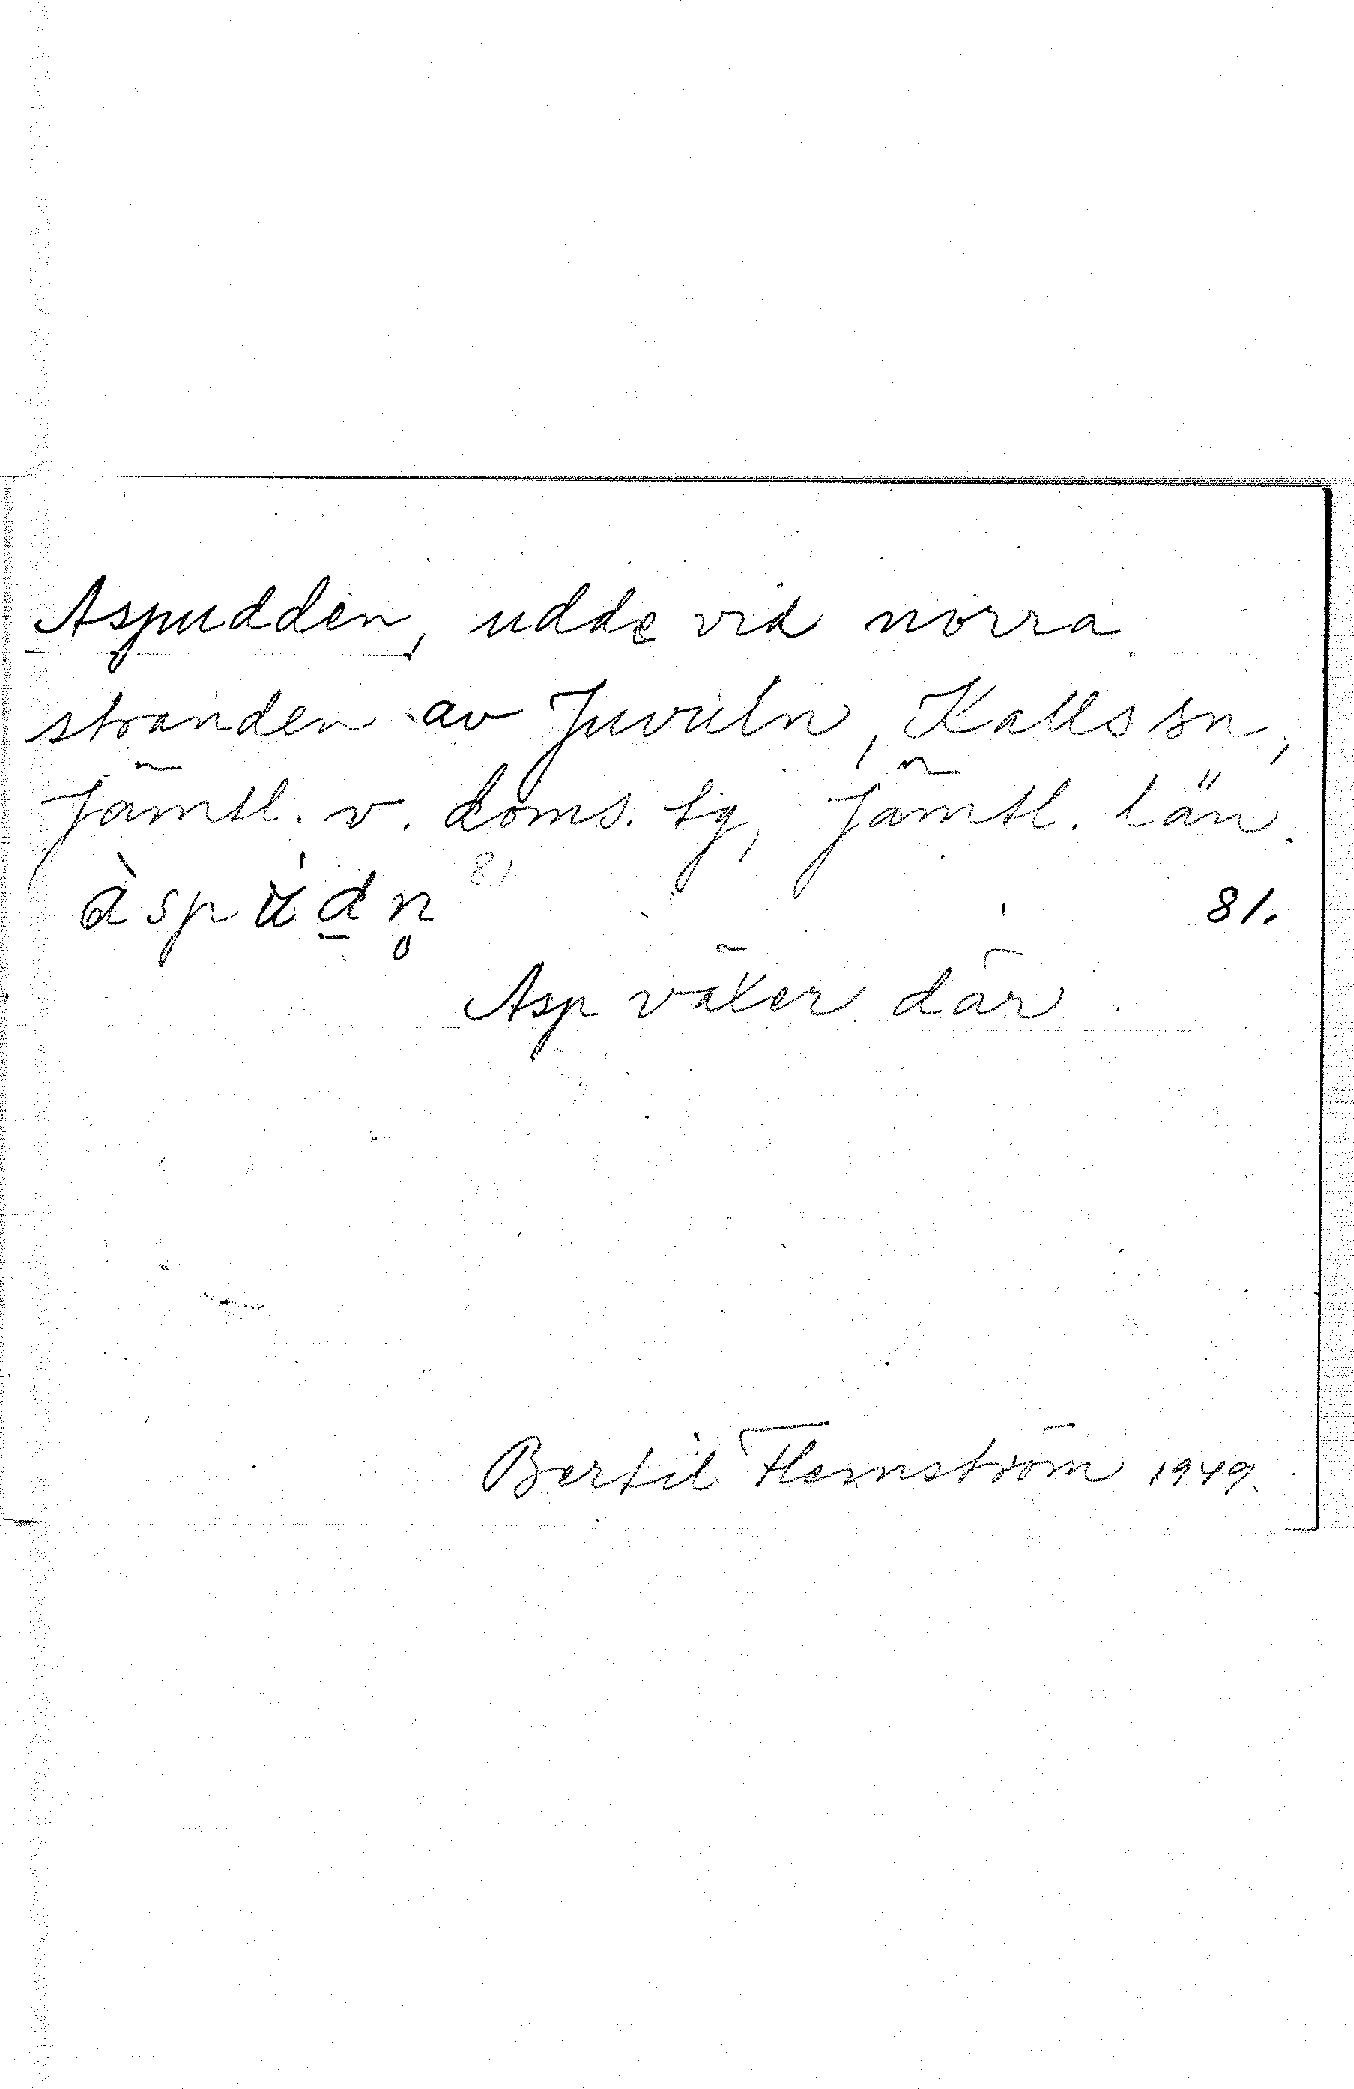 Aspudden, udde vid norra
stranden av Juvuln, Kalls sn,
Jämtl. v. doms. sg, Jämtl. län.
àspúd̲n̥ 81
81.
Asp växer där
Bertil Flemström 1949.